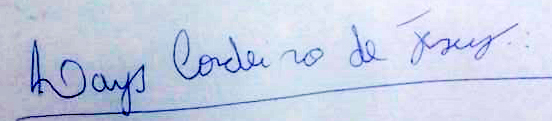 Adays Cordeiro de Jesus